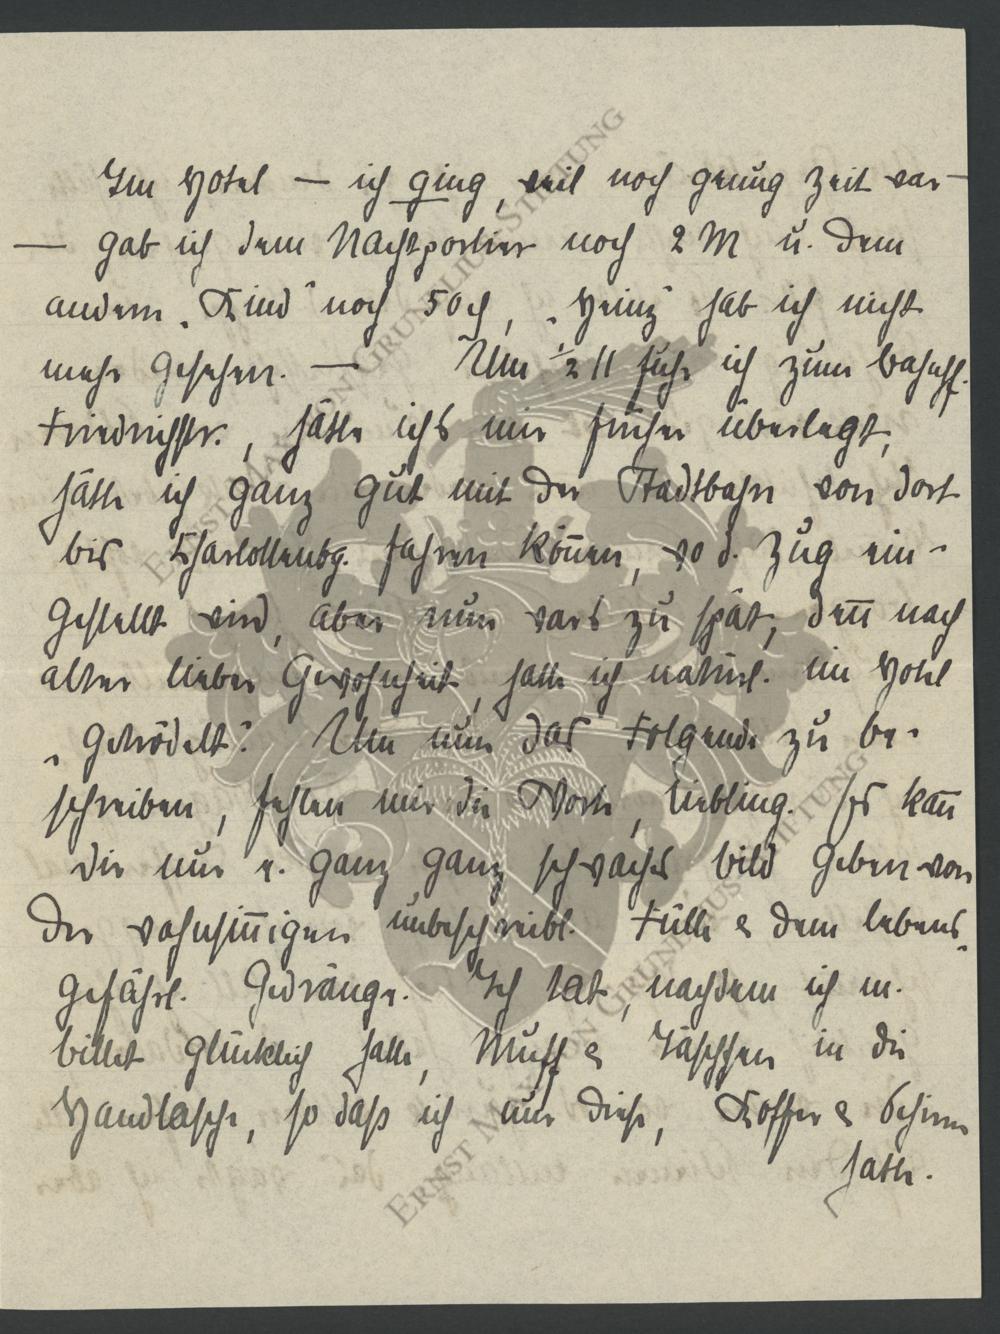 Im Hotel — ich ging, weil noch genug Zeit war —
— gab ich dem Nachtportier noch 2 M u. dem
andern „Kind“ noch 50 ch, „Heinz“ hab ich nicht
mehr gesehen. — Um ½ 11 fuhr ich zum Bahnhf.
Friedrichstr., hätte ichs mir früher überlegt,
hätte ich ganz gut mit der Stadtbahn von dort
bis Charlottenbg. fahren kön̅en, wo d. Zug ein-
gestellt wird, aber nun wars zu spät, den̅ nach
alter lieber Gewohnheit, hatte ich natürl. im Hotel
„getrödelt“. Um nun das Folgende zu be-
schreiben, fehlen mir die Worte, Liebling. Ich kan̅
Dir nur e. ganz ganz schwaches Bild geben von
der wahnsin̅igen unbeschreibl. Fülle & dem lebens-
gefährl. Gedränge. Ich tat, nachdem ich m.
Billet glücklich hatte, Muff & Täschchen in die
Handtasche, so daß ich nur diese, Koffer & Schirm
hatte.
ERNST MAX VON GRUNELIUS-STIFTUNG
ERNST MAX VON GRUNELIUS-STIFTUNG